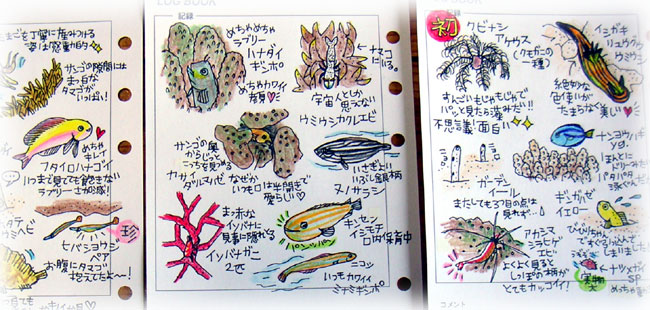 LOG BOOK
記録
たまごを丁寧に産みつける
姿は感動的
サンゴの隙間には
まっ赤な
タマゴが
いっぱい!
めちゃ
キレイ
フタイロハナゴイ
いつまで見てても飽きない
ラブリーさが炸裂!
ヒバシヨウジ
ペア
珍
お腹にタマゴ
抱えてたよ~!
めちゃめちゃ
ラブリー
ハナダイ
ギンポ
めちゃカワイイ
お顔
ナマコ
にいる。
宇宙人としか
思えない
ウミウシカクレエビ
サンゴの奥
からじーっと
こっちを見つめる
カサイ
ダルマハゼ
なぜか
いつも口は半開きで
愛らしい
いさぎよい
いぶし銀柄
ヌノサラシ
まっ赤な
イソバナに
見事に隠れてる
イソバナガニ
2匹
パンッパン
キンセン
イシモチ
口内保育中
ニコッ
いつもカワイイ
ミナミギンポ
LOG BOOK
記録
初
クビナシ
アケウス
(クモガニの
一種)
すんごいもじゃもじゃで
パッと見たら藻みたい!!
不思議で面白い
イシガキ
リュウグウ
ウミウシ
絶妙な
色使いが
たまらなく
美しい
ガーデン
イール
またしても3つ目の点は
見れず…
ナンヨウハギ
yg.
ほんとに
パタパタ
アカシマ
シラヒゲ
エビ
よくよく見ると
しっぽの柄が
とてもカッコイイ!
ギンガハゼ
イエロー
コメント